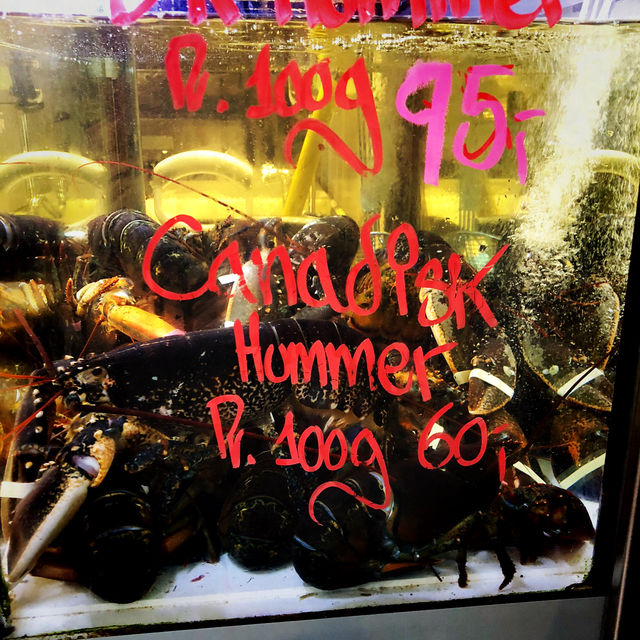 DK Hummer
Pr. 100g 95,-
Canadisk
Hummer
Pr. 100g 60,-